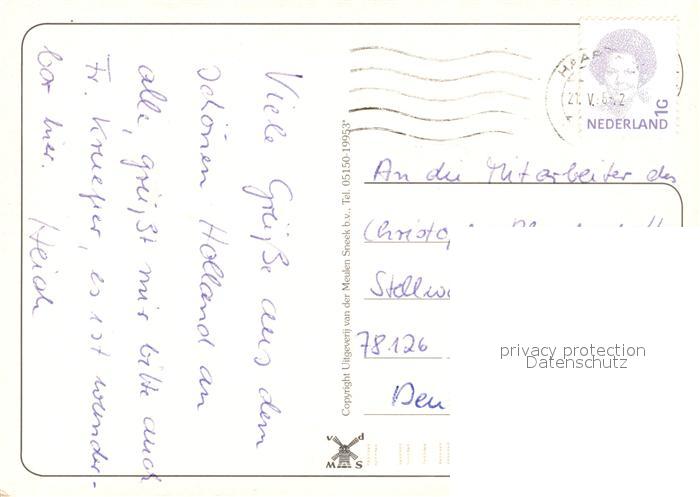 Viele Grüße aus dem
schönen Holland an
alle, grüßt mir bitte auch
Fr. Krueger, es ist wunder-
bar hier.
Copyright Uitgeverij van der Meulen Sneek b.v., Tel. 05150-19953*
v d
M S
NEDERLAND
1G
An die Mitarbeiter des
78126
privacy protection
Datenschutz